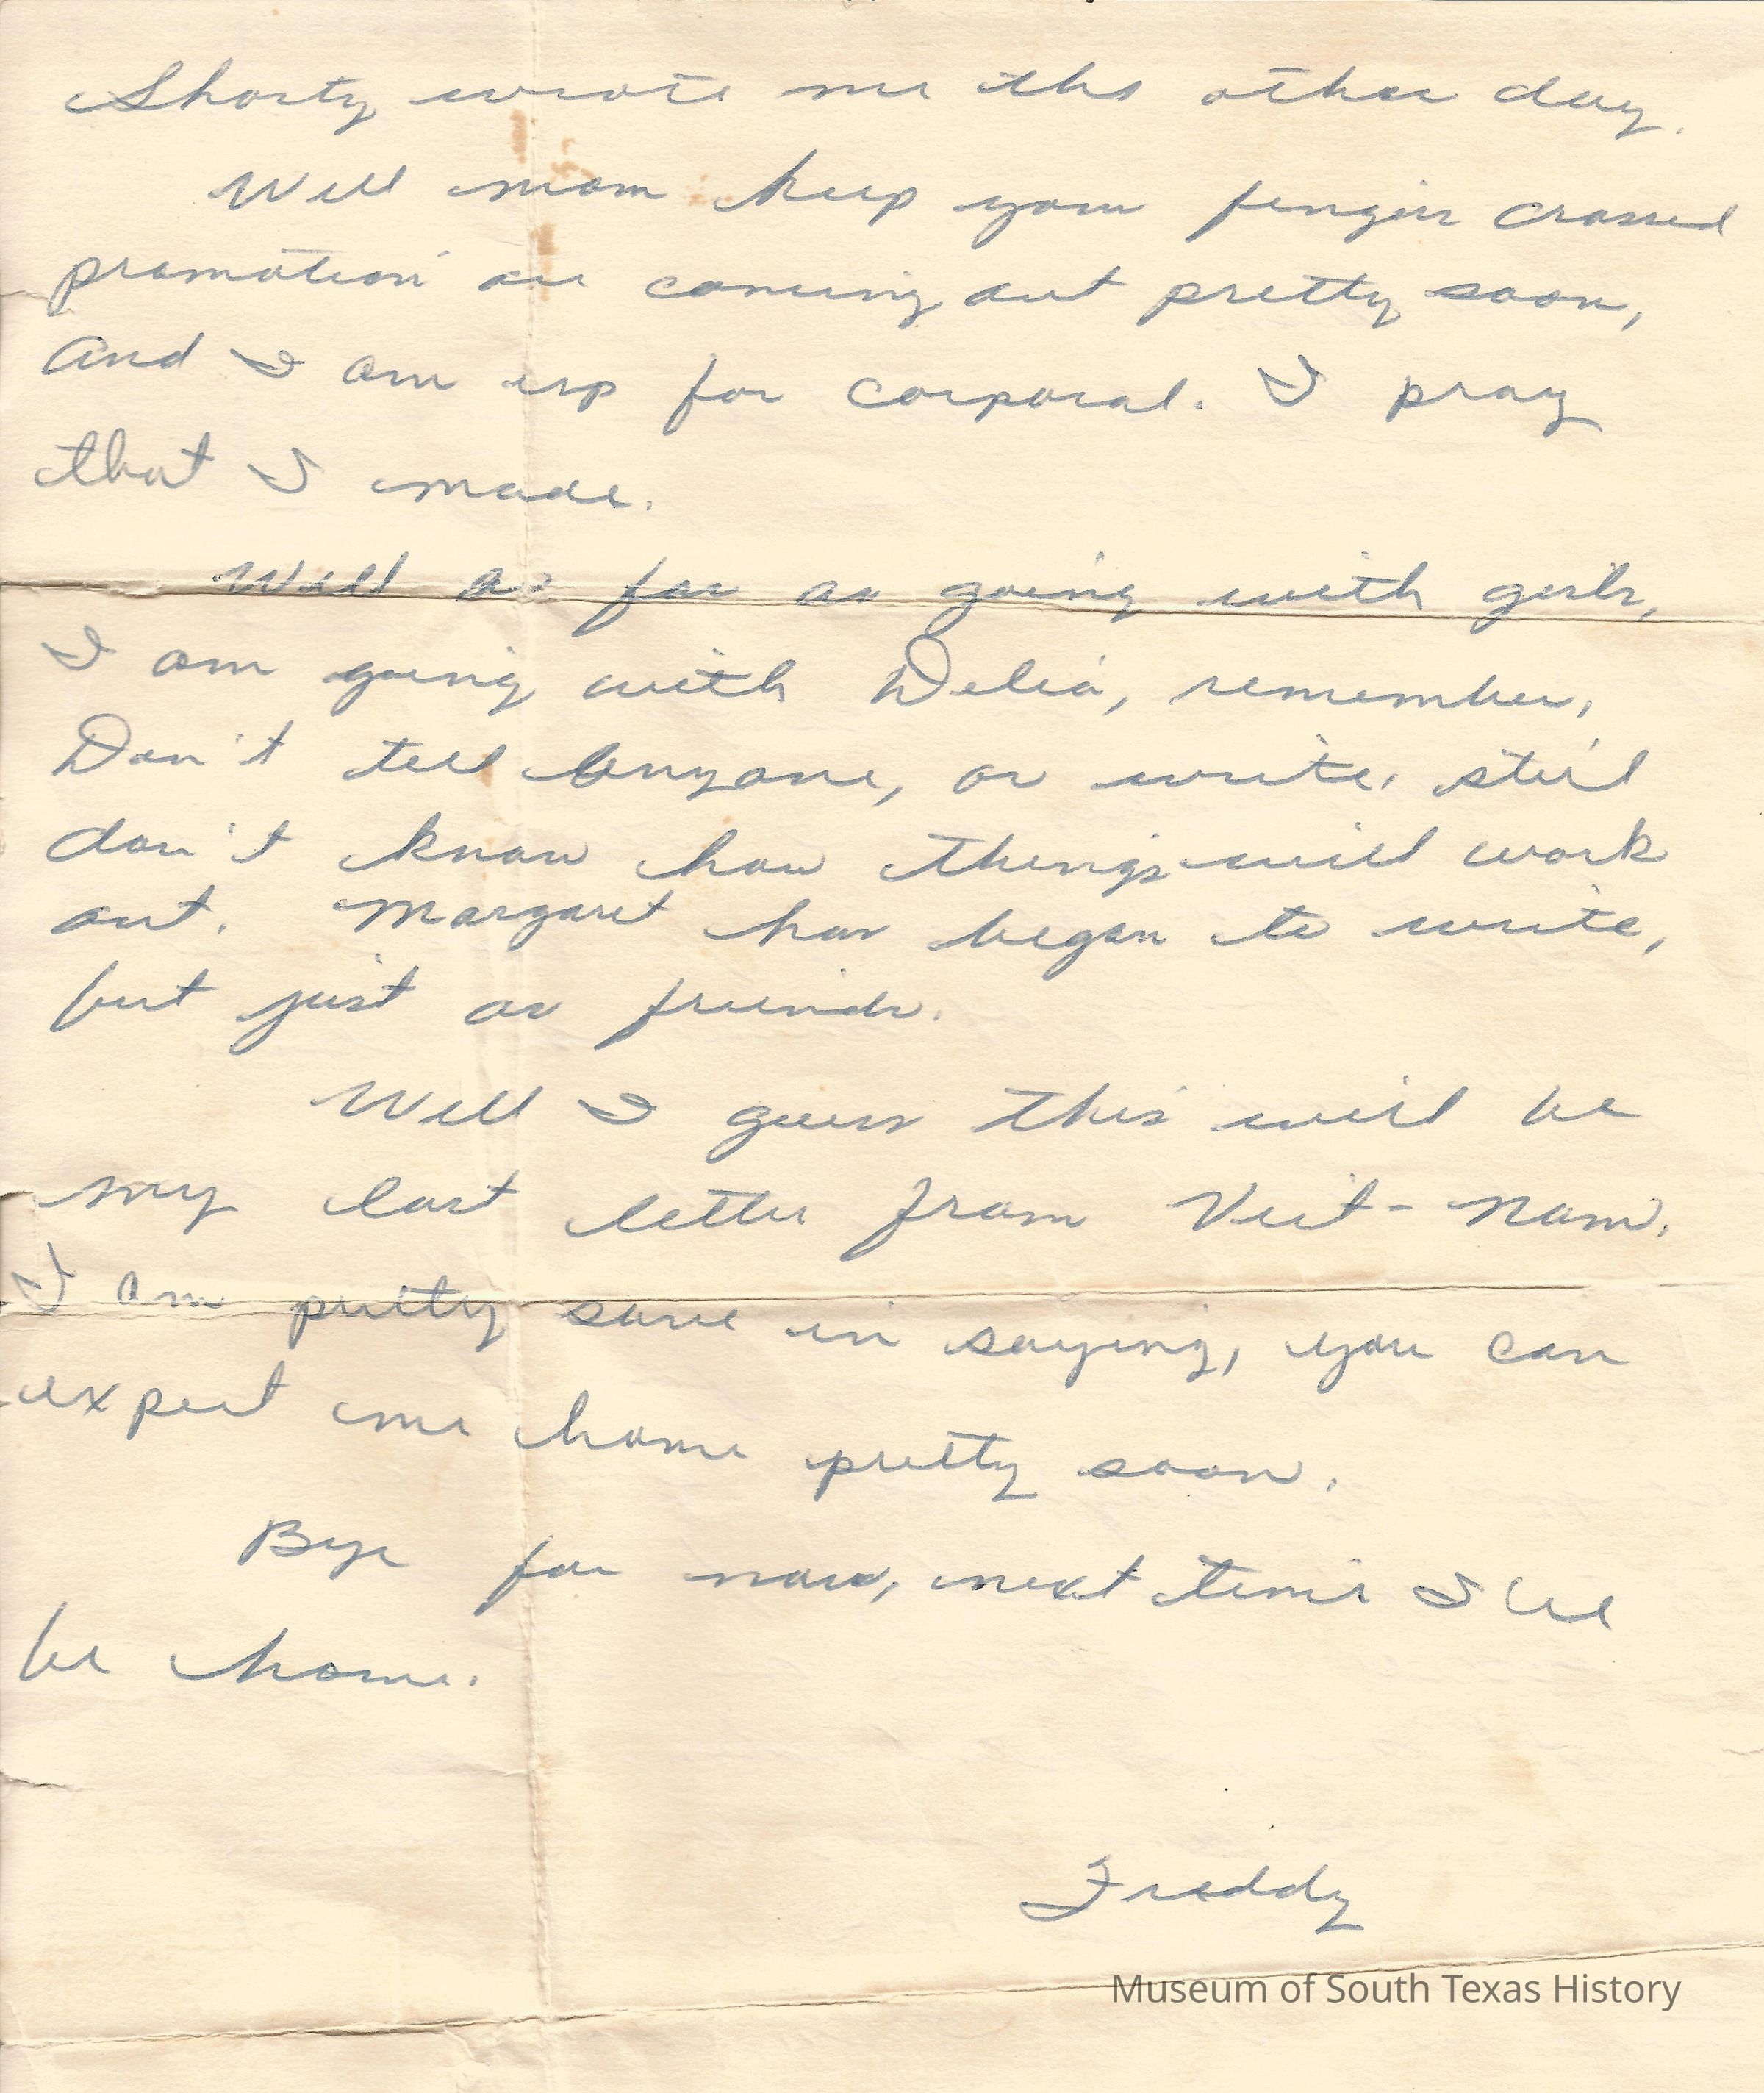 Shorty wrote me the other day.
Well mom keep your fingers crossed
promotion are coming out pretty soon,
and I am up for corporal. I pray
that I made.
Well as far as going with girls,
I am going with Delia, remember,
Don't tell anyone, or write, still
don't know how things will work
out. Margaret has began to write,
but just as friends.
Well I guess this will be
my last letter from Viet-Nam.
I am pretty sure in saying, you can
expect me home pretty soon.
Bye for now, next time I'll
be home.
Freddy
Museum of South Texas History